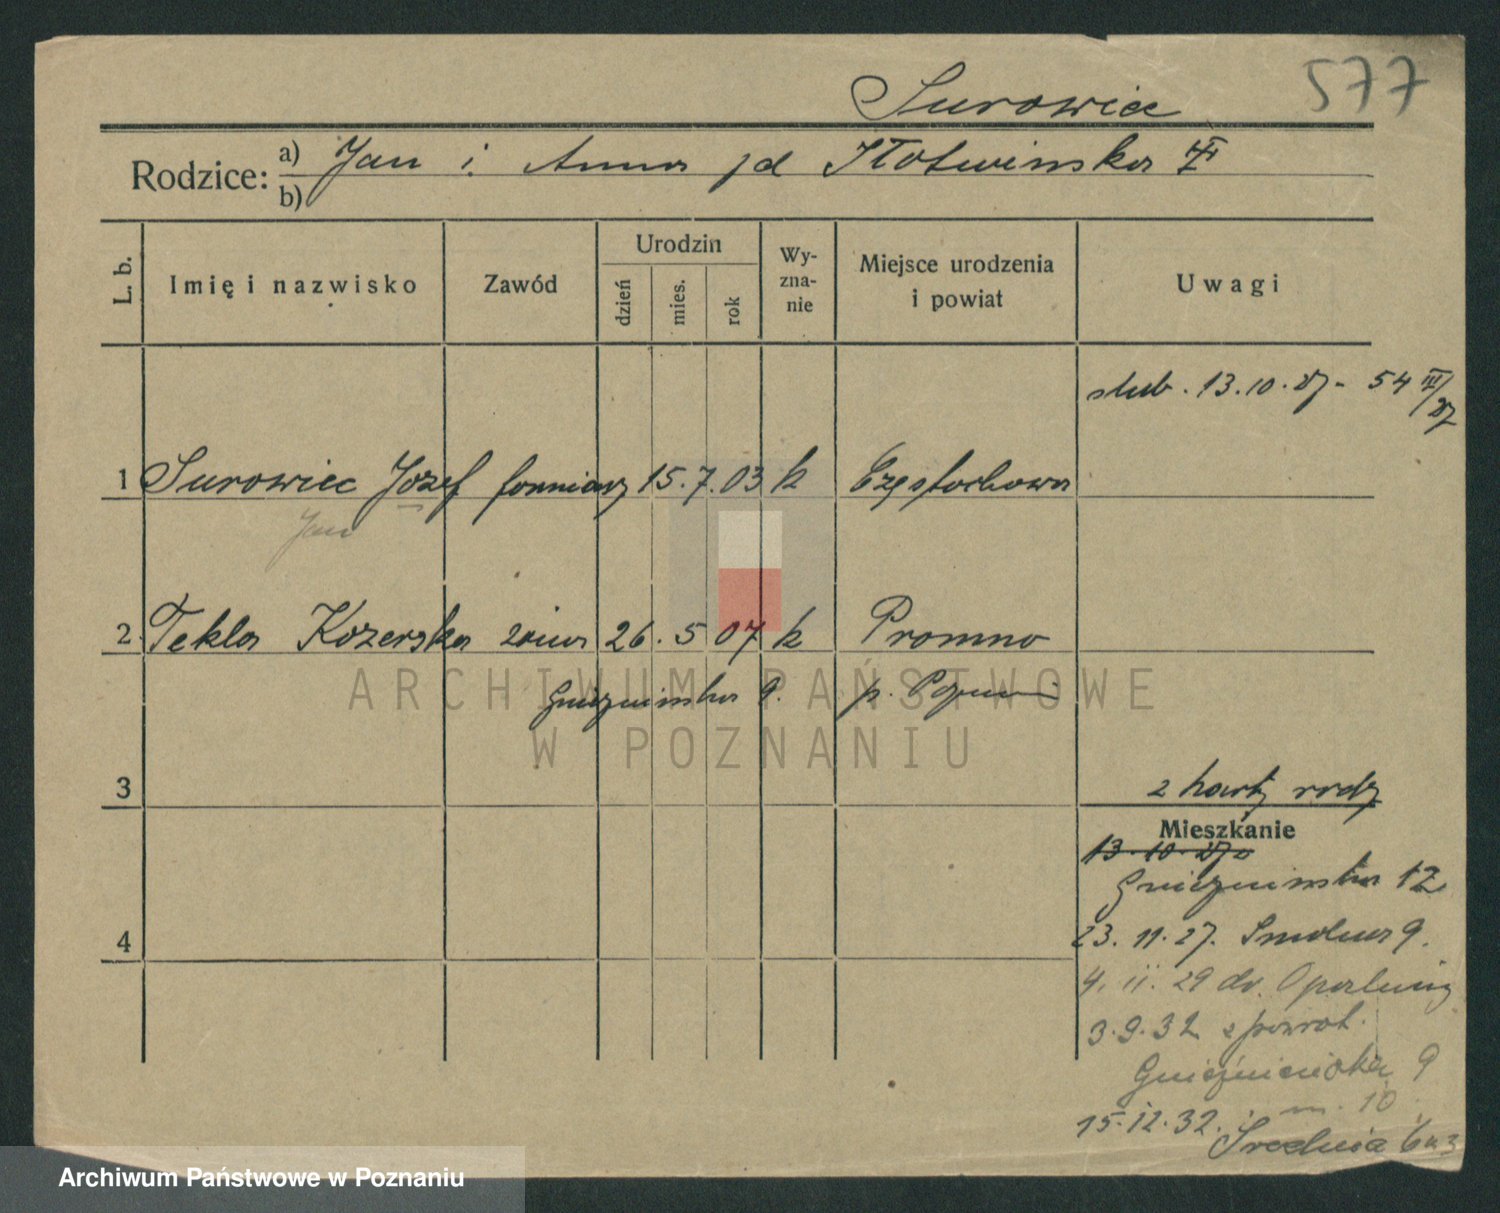 577
Surowiec
Rodzice: a) Jan i Anna jd Kłotwinska
b)
L. b. Imię i nazwisko Zawód Urodzin dzień mies. rok Wy-zna-nie Miejsce urodzenia i powiat Uwagi
slub. 13.10.27 - 54 III/27
1 Surowiec Józef forniarz 15. 7. 03 k Częstochowa
Jan
2 Tekla Kozerska żona 26. 5 07 k Promno
Gniezninska 9. p.
ARCHIWUM PAŃSTWOWE
W POZNANIU
3 2 karty
Mieszkanie
13.10.27
Gniezninska 12
4 23. 11. 27. Smolna 9.
4. 11. 29 do Opalenicy
3.9.32 z powrot.
Gnieźnienska 9
m. 10
15.12.32. Średnia 6 m 3
Archiwum Państwowe w Poznaniu